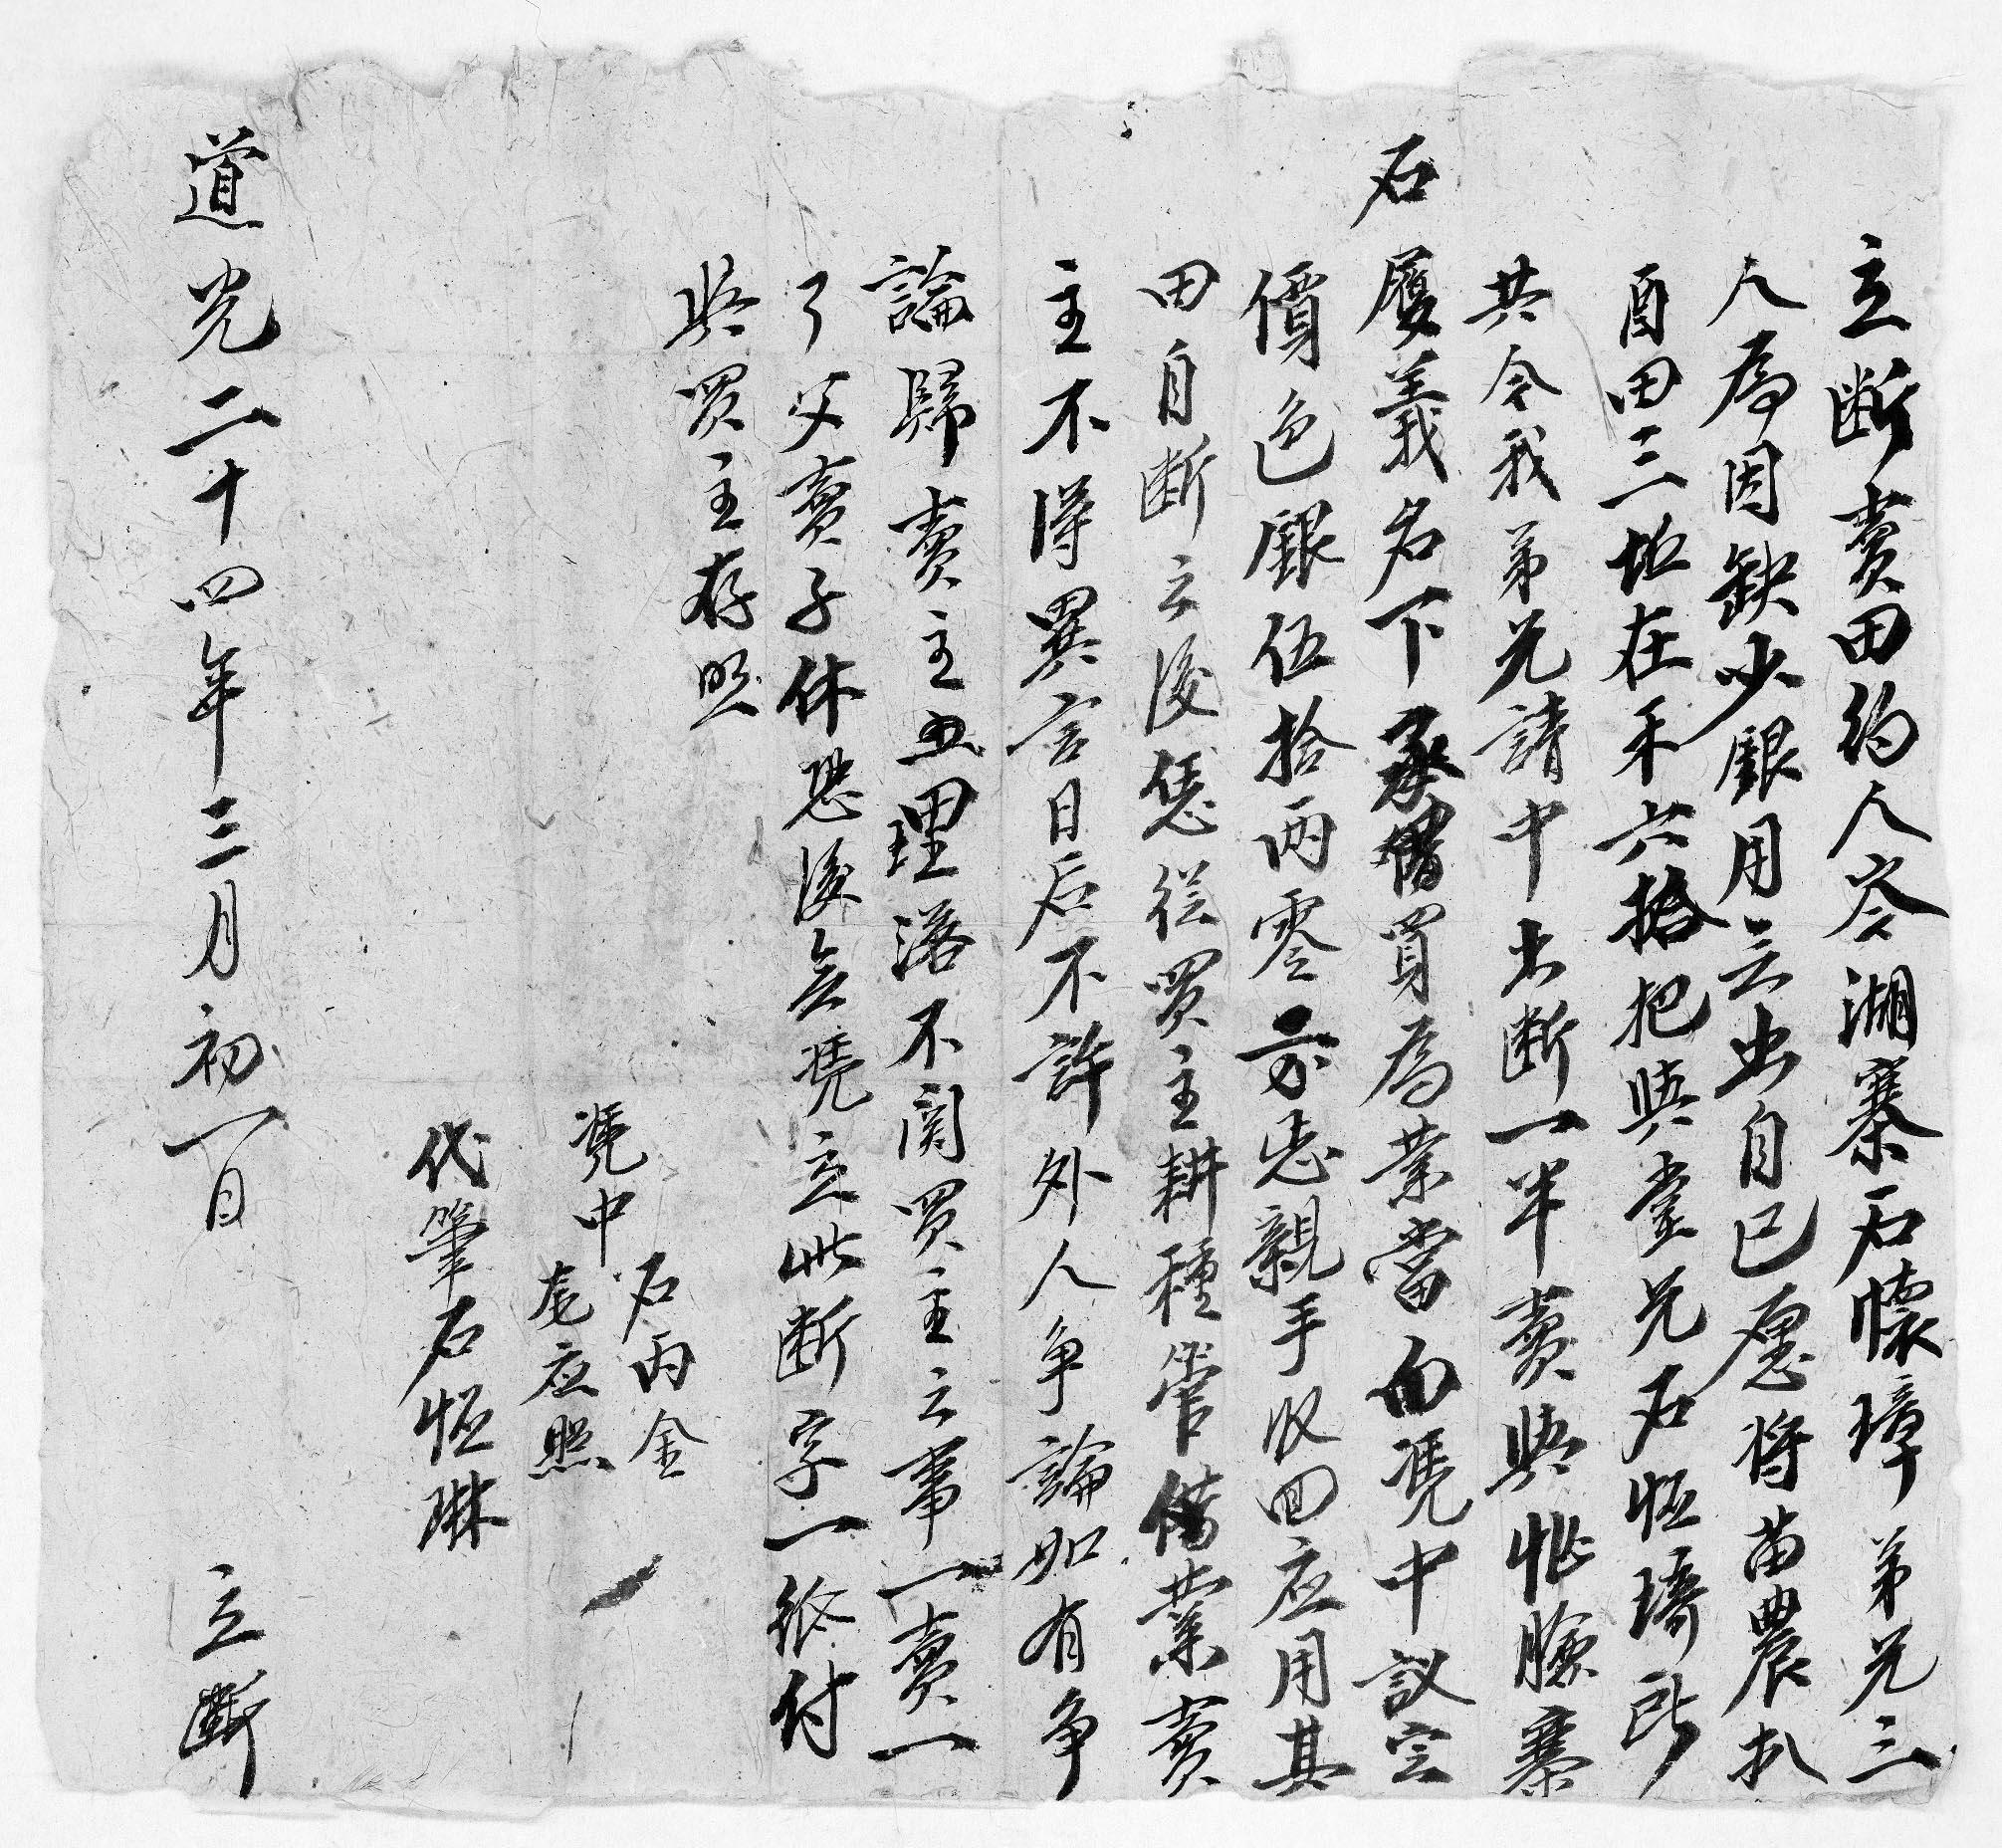 立断賣田約人岑湖寨石懷璋弟兄三
人為因缺少銀用云出自己愿将苗農扒
酉田三坵在禾六拾把與堂兄石恒琦所
共今我弟兄請中出断一半賣與臉寨
石履義名下承買為業當面凴中議定
價色銀伍拾両零親手収回应用其
田自断云後凭從買主耕種管偹業賣
主不得異言日后不許外人争論如有争
論歸賣主理落不関買主之事一賣一
了父賣子休恐後無凴立此断字一紙付
與買主存照
凴中 石丙金
龙应照
代筆石恒琳
道光二十四年三月初一日 立断